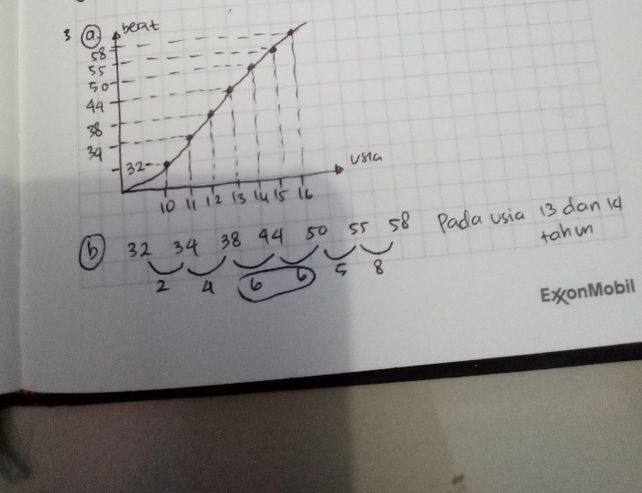 3 a berat
58
55
50
44
38
34
32
usia
10 11 12 13 14 15 16
b 32 34 38 44 50 55 58 Pada usia 13 dan 14
tahun
2 4 6 6 5 8
ExxonMobil